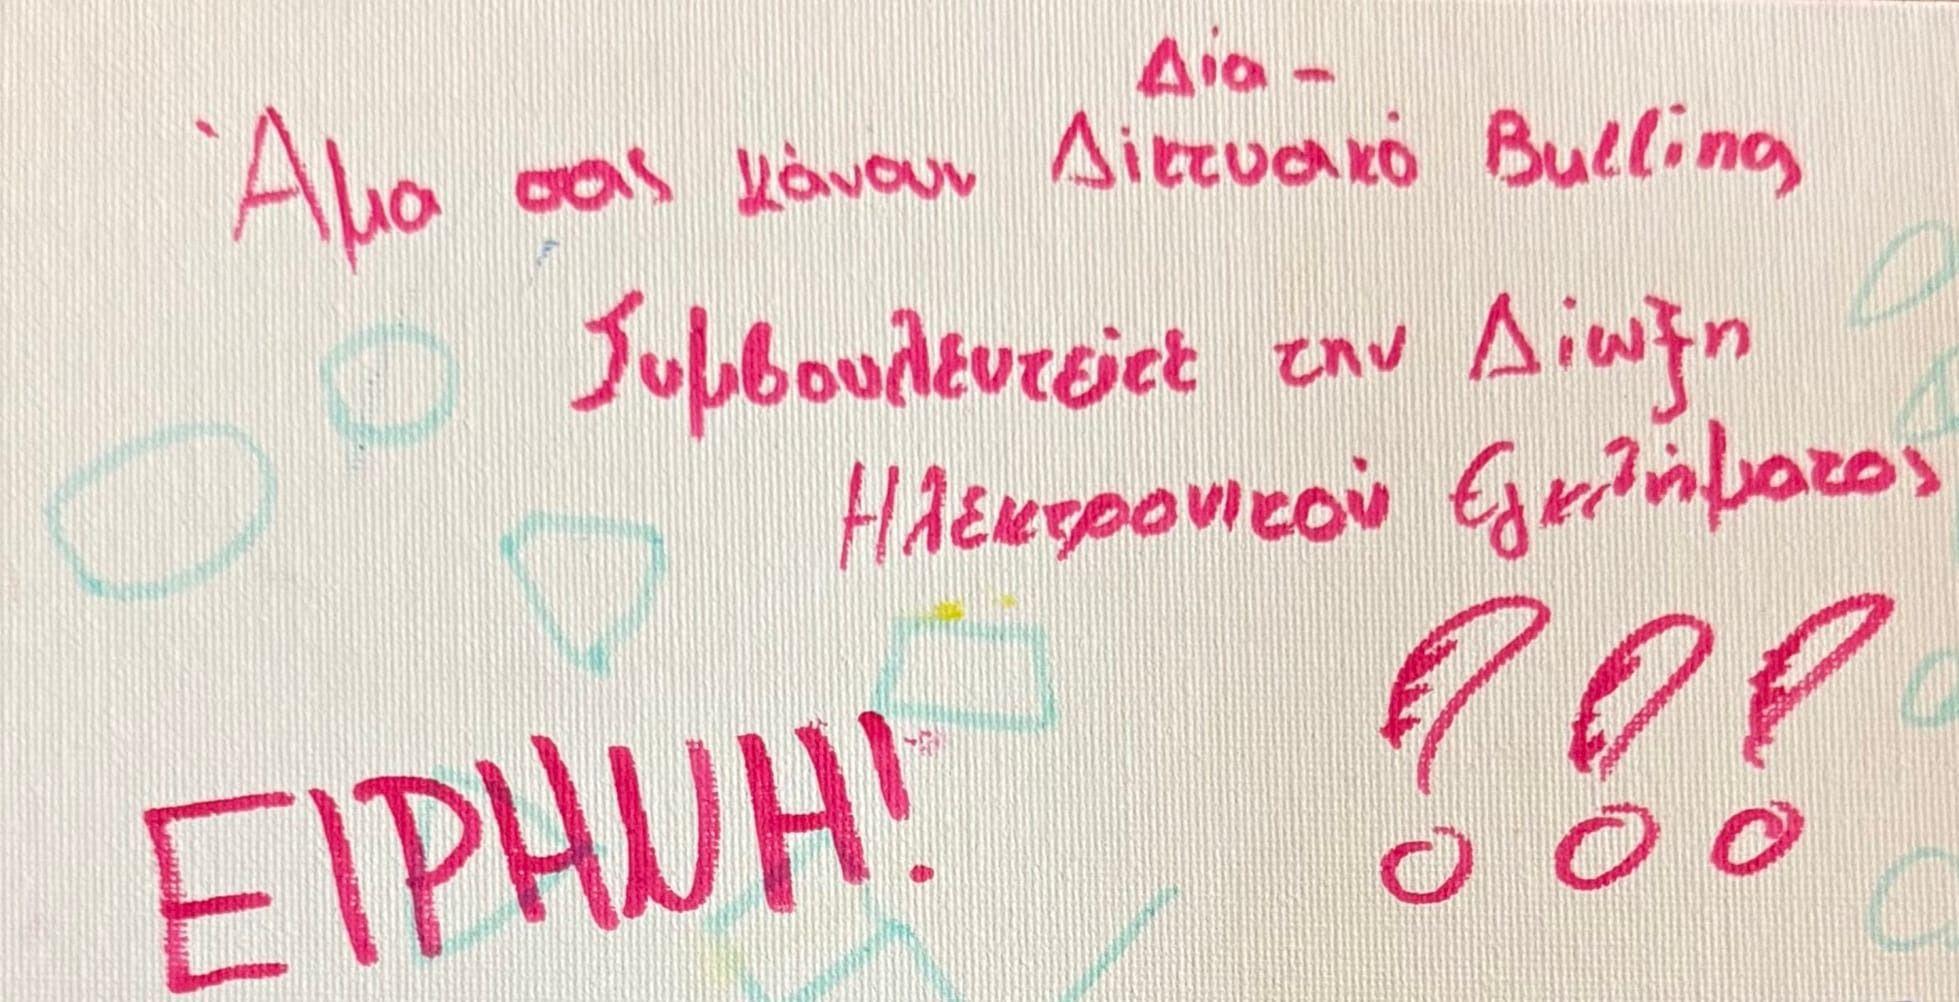 Δία -
Άμα σας κάνουν Δίκτυακό Bulling
Συμβουλευτείτε την Δίωξη
Ηλεκτρονικού Εγκλήματος
!!!
ΕΙΡΗΝΗ!